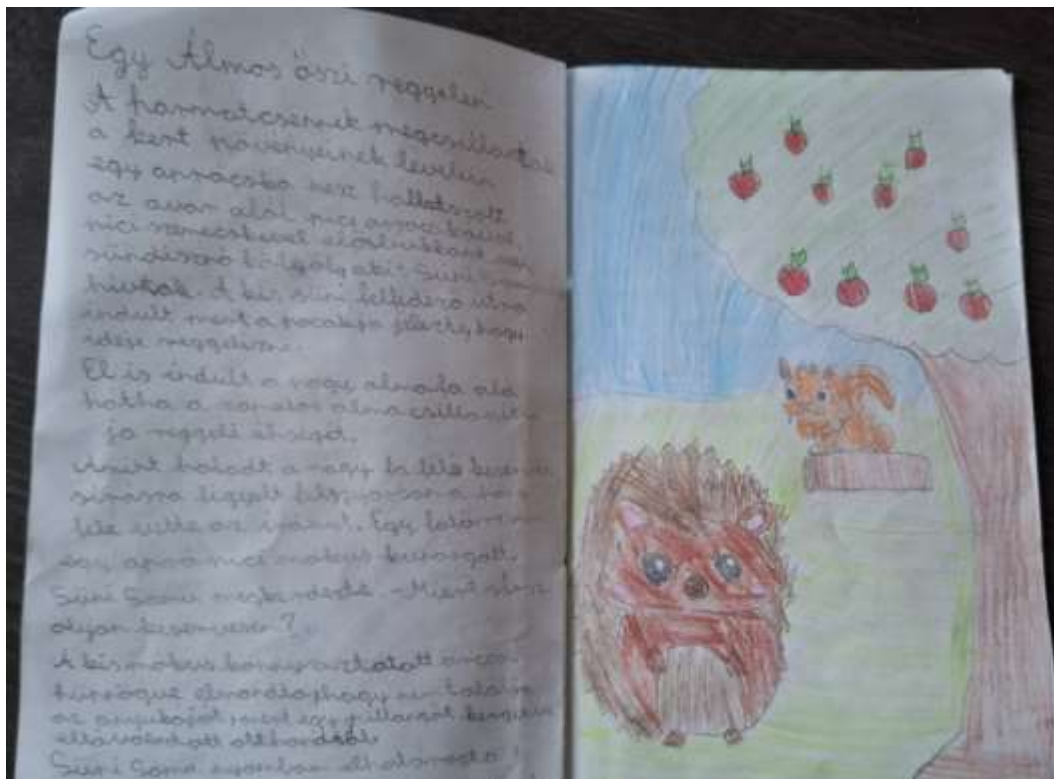 Egy Álmos őszi reggelen
A harmatcseppek megcsillantak
a kert növényeinek levelein
egy aprócska nesz hallatszott
az avar alól pici
pici szemecskével
sündisznó akit Süni
hívtak. A kis süni felfedező útra
indult mert a pocakja jelezte, hogy
ideje reggelizni.
El is indult a nagy almafa alá
hátha a zamatos alma csillapít
ja reggeli éhségét.
Amint haladt a nagy fa felé keserves
sírásra figyelt fel
felé vitte az útját. Egy
egy apró pici mókus kuporgott.
Süni Somi megkérdezte. -Miért sírsz
olyan keservesen?
A kis mókus könny áztatott arccal
elmondta, hogy nem találja
az anyukáját, mert egy pillangót kergetve
otthonától.
Süni Soma nyomban elhatározta